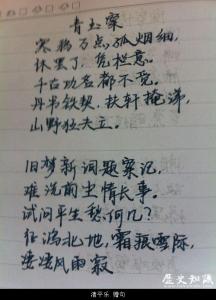 青玉案
寒鸦万点孤烟细，
休罢了，凭栏意。
千古功名都不觉。
丹书铁契，扶轩掩涕，
山野独夫立。
旧梦新词题案记，
难说前尘情长事。
试问平生愁何几？
征鸿北地，霜狼雪际，
凄凄风雨寂
历史知识
清平乐 赠句